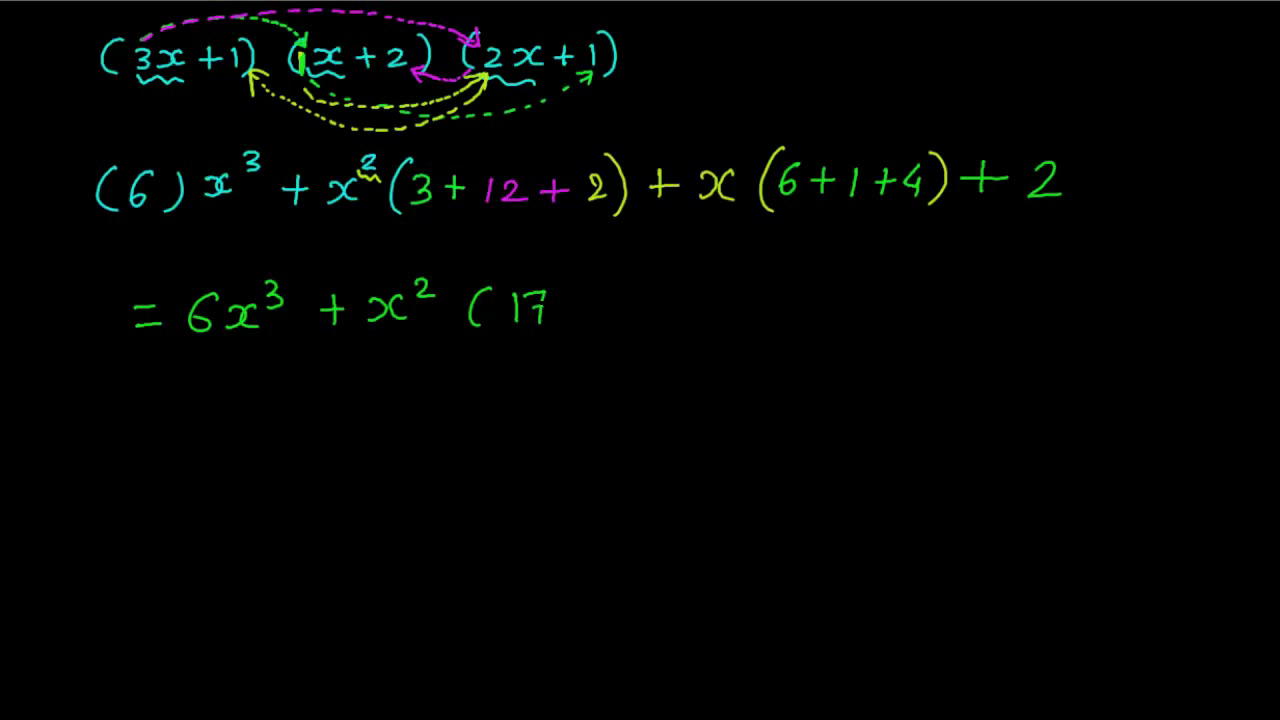 (3x+1) (x+2) (2x+1)
(6)x³ + x²(3+12+2) + x(6+1+4) + 2
= 6x³ + x² (17